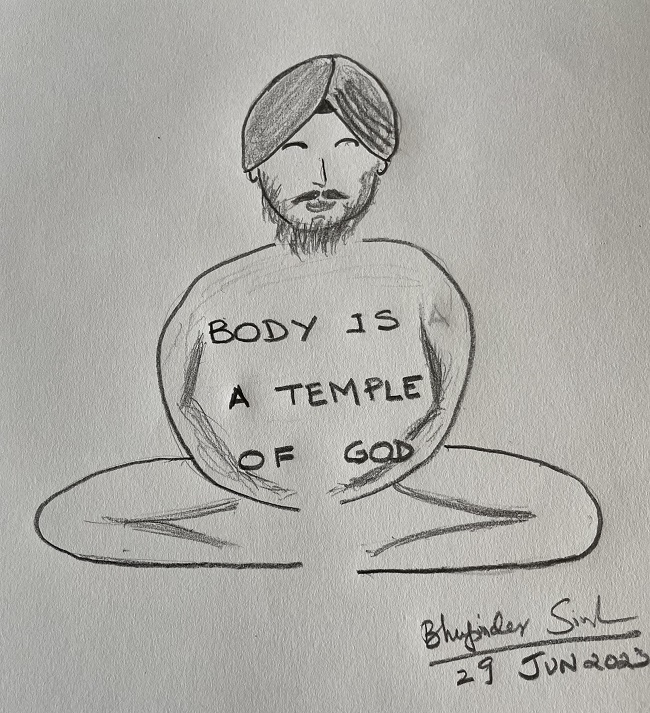 BODY IS
A TEMPLE
OF GOD
Bhupinder Singh
29 JUN 2023